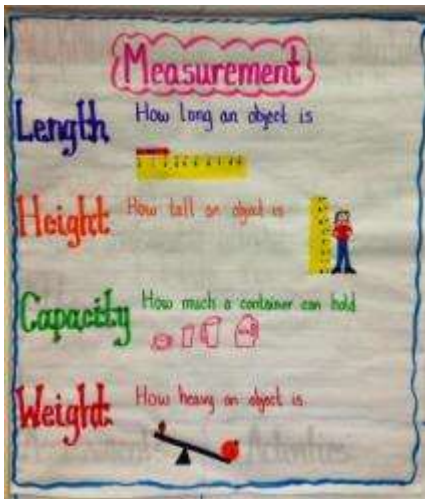 Measurement
Length How long an object is
Height How tall an object is
Capacity How much a container can hold
Weight: How heavy an object is
Activities